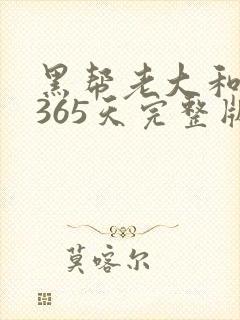 黑帮老大和
365天完整版
莫喀尔